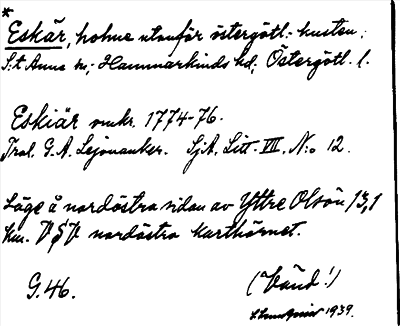 *
Eskär, holme utanför östergötl. kusten,
S:t Anna sn; Hammarkinds hd; Östergötl. l.
Eskiär omkr. 1774-76.
Trol. G. A. Lejonanker. SjA. Litt. VII. N:o 12.
Läge å nordöstra sidan av Yttre Olsön, 13,1
km. V§V. nordöstra karthörnet.
G. 46.
(Vänd!)
1939.